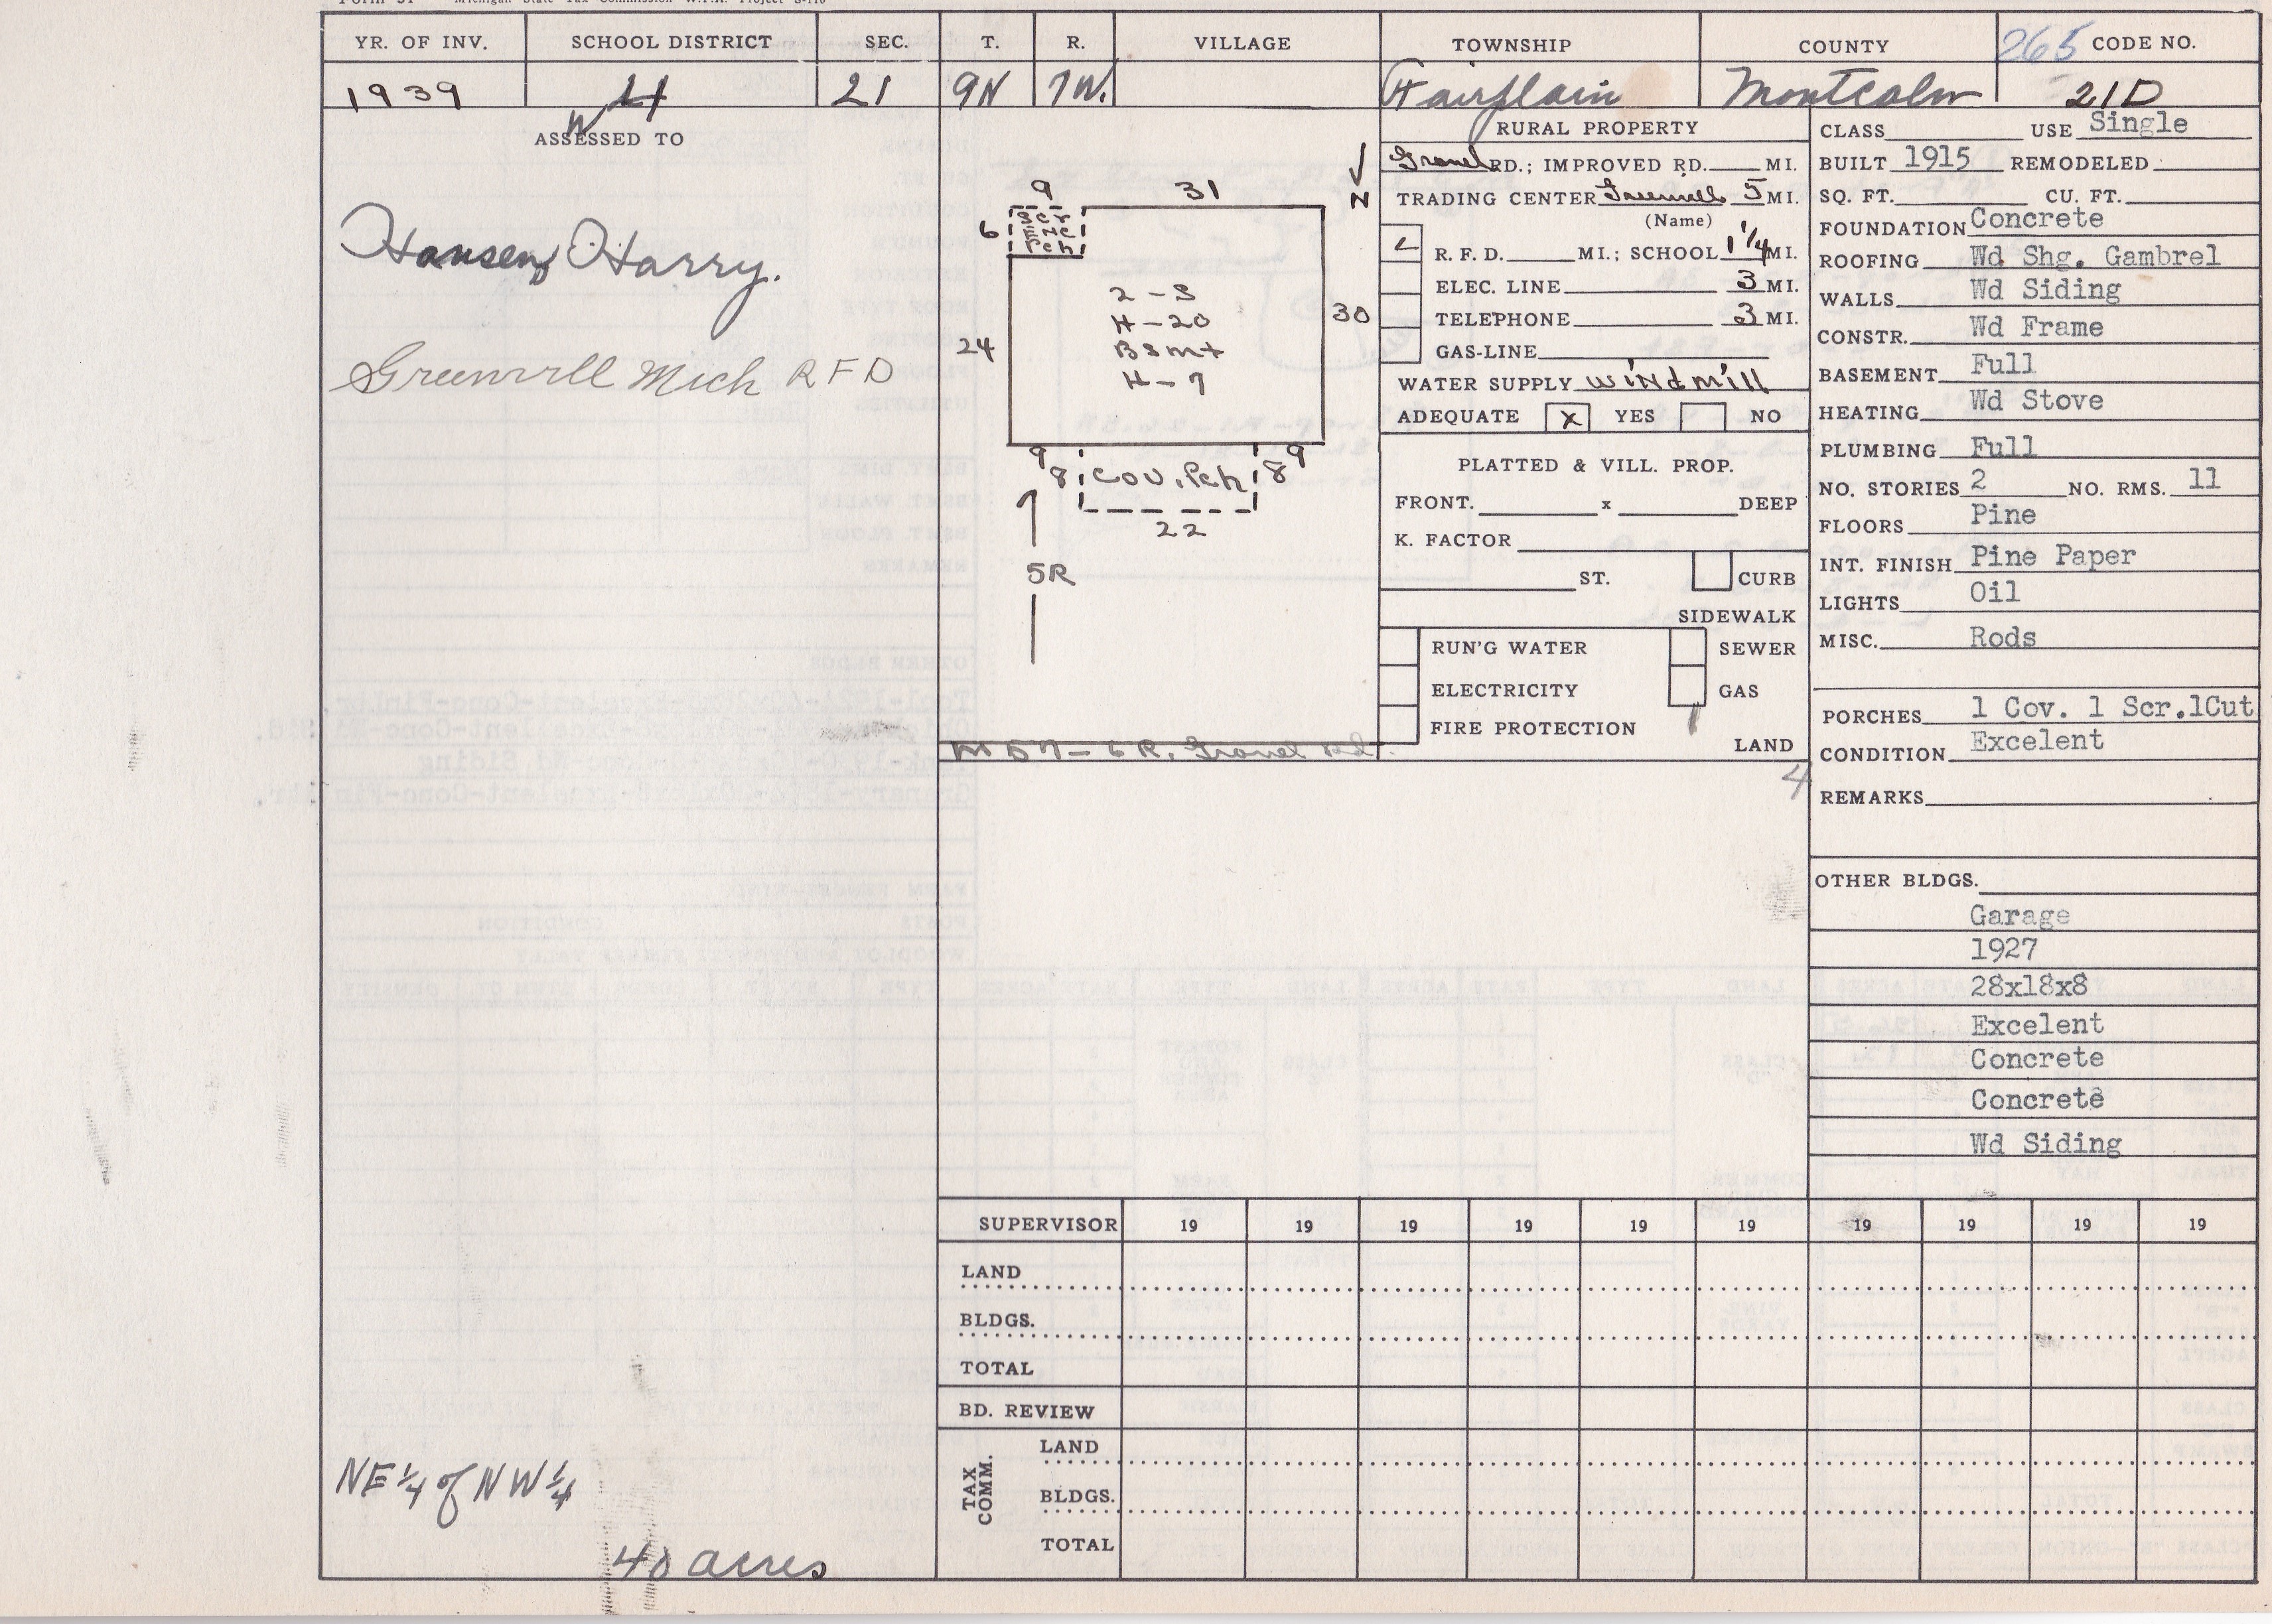 Form 51 Michigan State Tax Commission W.P.A. Project S-116
YR. OF INV. SCHOOL DISTRICT SEC. T. R. VILLAGE TOWNSHIP COUNTY 265 CODE NO.
1939 4 21 9N 7W. Fairplain Montcalm 21D
ASSESSED TO
Hansen, Harry.
Greenville Mich R F D
NE 1/4 of NW 1/4
40 acres
N
9 31
6 Scr Enc Pch
2-S
H-20
Bsmt
H-7
24 30
9 9
8 Cov. Pch 8
22
5R
M 57 - 6 R. Gravel Rd.
RURAL PROPERTY
Gravel RD.; IMPROVED RD. MI.
TRADING CENTER Greenville 5 MI.
(Name)
R. F. D. MI.; SCHOOL 1 1/4 MI.
ELEC. LINE 3 MI.
TELEPHONE 3 MI.
GAS-LINE
WATER SUPPLY windmill
ADEQUATE x YES NO
PLATTED & VILL. PROP.
FRONT. x DEEP
K. FACTOR
ST. CURB
SIDEWALK
RUN'G WATER SEWER
ELECTRICITY GAS
FIRE PROTECTION
LAND
4
CLASS USE Single
BUILT 1915 REMODELED
SQ. FT. CU. FT.
FOUNDATION Concrete
ROOFING Wd Shg. Gambrel
WALLS Wd Siding
CONSTR. Wd Frame
BASEMENT Full
HEATING Wd Stove
PLUMBING Full
NO. STORIES 2 NO. RMS. 11
FLOORS Pine
INT. FINISH Pine Paper
LIGHTS Oil
MISC. Rods
PORCHES 1 Cov. 1 Scr.1Cut
CONDITION Excelent
REMARKS
OTHER BLDGS.
Garage
1927
28x18x8
Excelent
Concrete
Concrete
Wd Siding
SUPERVISOR 19 19 19 19 19 19 19 19 19 19
LAND
BLDGS.
TOTAL
BD. REVIEW
TAX COMM.
LAND
BLDGS.
TOTAL